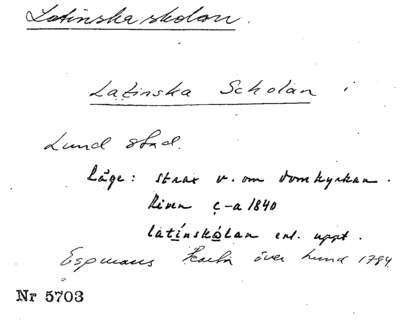 Latinska skolan.
Latinska Scholan i
Lund stad.
Läge: strax v. om domkyrkan.
Riven c-a 1840
latínskólan enl. uppt.
Espmans Karta över Lund 1784
Nr 5703